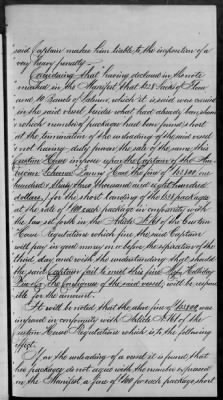 said Captain makes him liable to the imposition of a
very heavy penalty —
Considering that having declared in the note
marked in the Manifest that 1538 Sacks of Flour
and 10 Barrels of Salmon, which it is said were sound
in the said vessel besides what had already been shown
which number of packages had been found short
at the termination of the unloading of the said vessel
not having duly proven the sale of the same, this
Custom House impose upon the Captain of the
Schooner "Fannie" the fine of $153800 one
hundred & fifty three thousand and eight hundred
dollars, for the short landing of the 1538 packages
at the rate of $100 each package in conformity with
the law set forth in the Article of the Custom
House Regulations which fine, the said Captain
will pay in good money on or before the expiration of the
third day, and with the understanding that should
the said Captain fail to meet this fine Holliday
the Consignees of the said vessel, will be respon
sible for the amount.
It will be noted that the above fine of $153800 was
imposed in conformity with Article of the
Custom House Regulations which is to the following
effect.
If on the unloading of a vessel it is found that
the packages do not agree with the number expressed
in the Manifest a fine of $100 for each package short